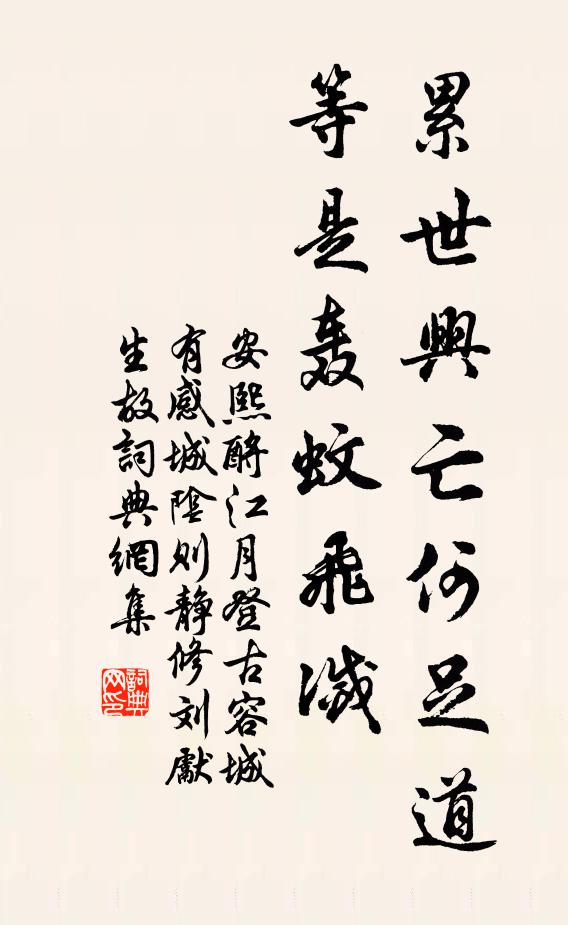 累世興亡何足道
等是轰蚊飛滅
安熙酹江月登古容城
有感城陰则靜修刘獻
生故詞典網集
詞典网印